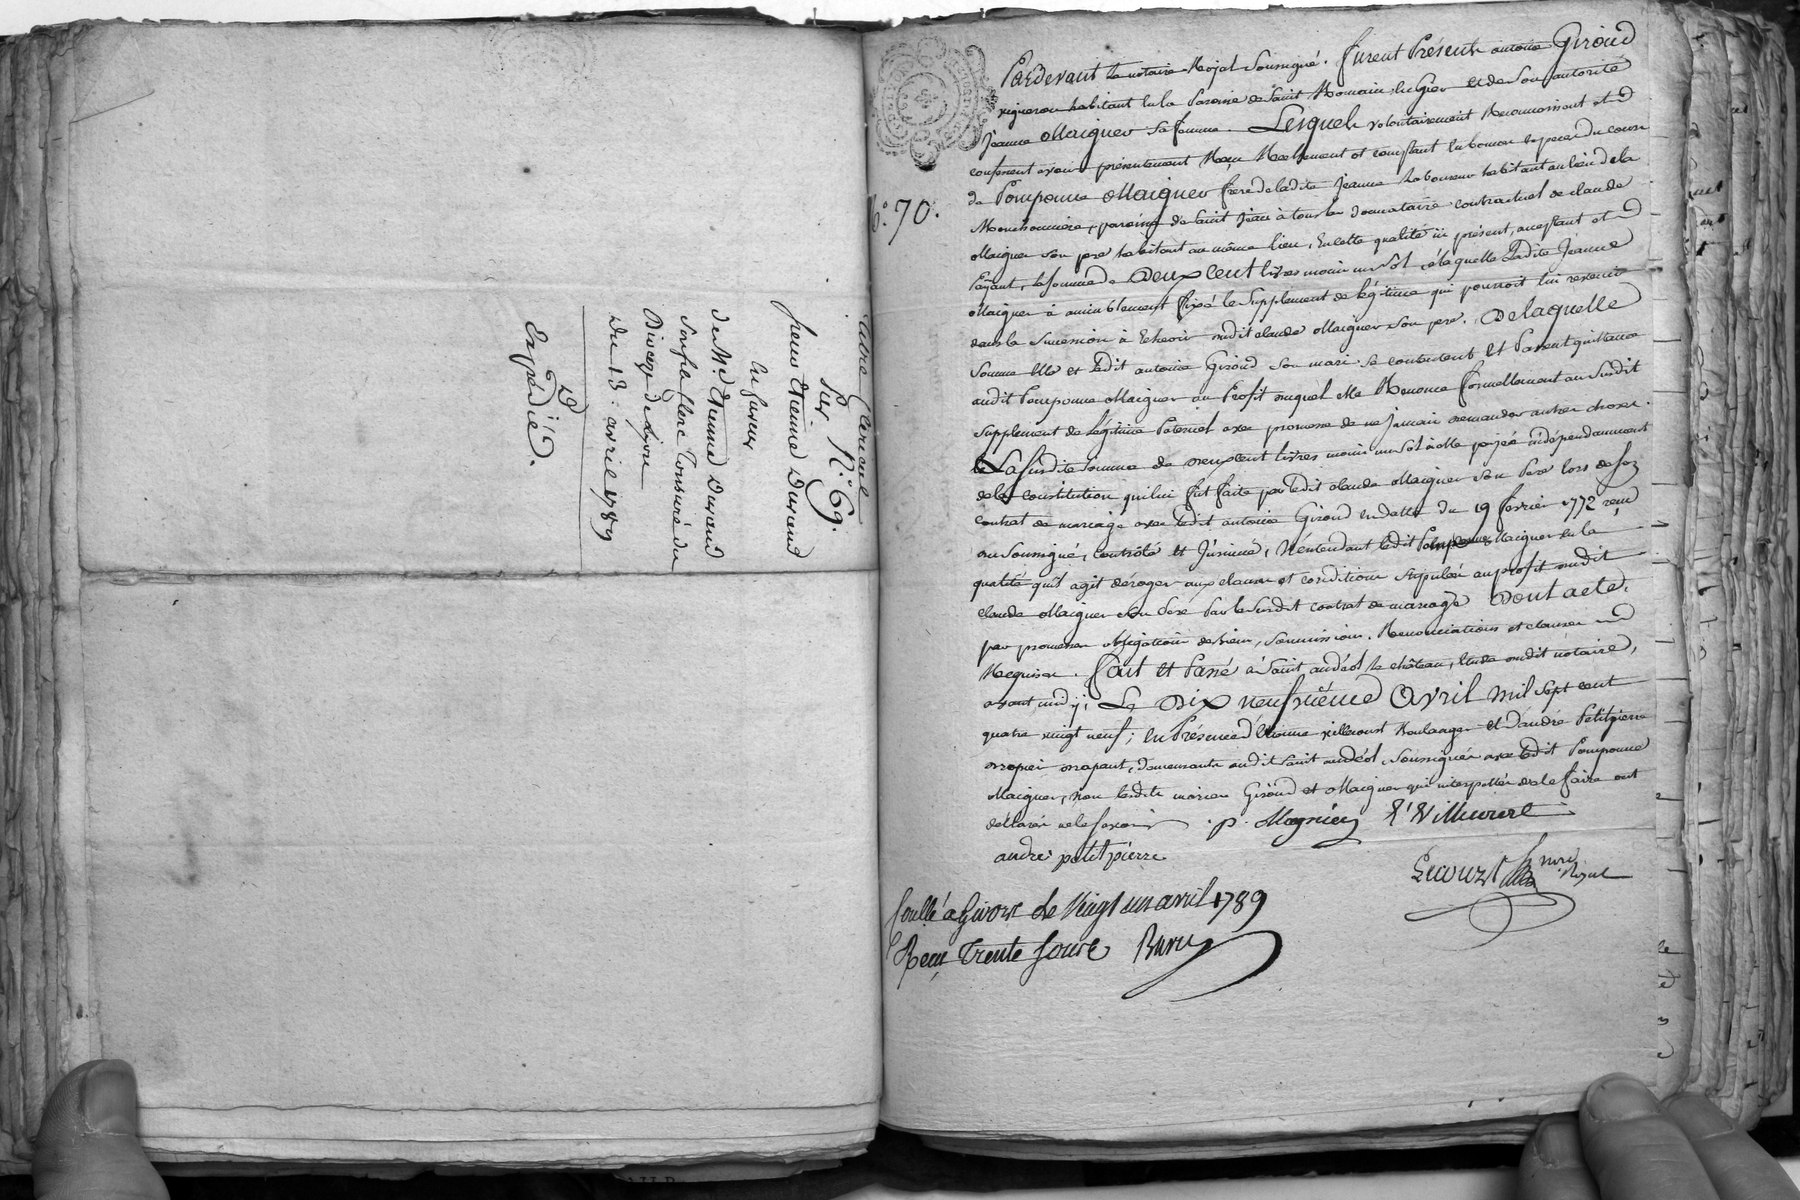 titre Clerical
sur
N.° 69.
sieur Etienne Durand
En faveur
de M.e Etienne Durand
son fils Clerc Tonsuré du
Diocèse de Lyon
Du 13: avril 1789
Expédié.
N.° 70.
Pardevant le notaire Royal soussigné. furent Présents antoine Giroud
vigneron habitant en la Paroisse de Saint Romain en Gier et de son autorité
Jeanne Maignier sa femme. Lesquels volontairement Reconnoissent et
confessent avoir présentement Reçu Reellement et comptant en bonnes especes du cours
de Pomponne Maignier frere de ladite Jeanne laboureur habitant au lieu de la
paroisse de saint Jean à toulas donnataire contractuel de claude
Maignier son pere habitant au même lieu, En cette qualité ici présent, acceptant et
Payant, la somme de Deux cent livres moins un sol à laquelle Ladite Jeanne
Maignier à amiablement fixé le supplement de légitime qui pourroit lui revenir
dans la succession à Echeoir dudit claude Maignier son pere. De laquelle
somme Elle et ledit antoine Giroud son mari se contentent Et Passent quittance
audit Pomponne Maignier au Profit duquel elle Renonce formellement au susdit
supplement de légitime Paternel avec promesse de ne jamais demander autre chose.
La susdite somme de deux cent livres moins un sol à elle payée indépendamment
de la constitution qui lui fut faite par ledit claude Maignier son Pere lors de son
contrat de mariage avec ledit antoine Giroud En datte du 19 fevrier 1772 reçu
du soussigné, contrôlé et Jnsinué, N'entendant ledit Pomponne Maignier En la
qualité qu'il agit déroger aux clauses et conditions stipulées au profit dudit
claude Maignier son Pere Par le susdit contrat de mariage Dont acte,
par promesses obligation de biens, soumissions, Renonciations et clauses
Requises. fait et Passé à Saint andéol le château, Etude dudit notaire,
avant midy, Le Dix neufvième Avril mil sept cent
quatre vingt neuf; En Présence d'Etienne villecourt Boulanger Et d'andré Petitpierre
drapier drapant, demeurants audit Saint andéol, soussignés avec ledit Pomponne
Maignier, non lesdits mariés Giroud et Maignier qui interpellés de le faire ont
déclaré ne le savoir
p. Magnien
andré petitpierre
nore Royal
Conllé a Givors le Vingt un avril 1789
Reçu Trente sous